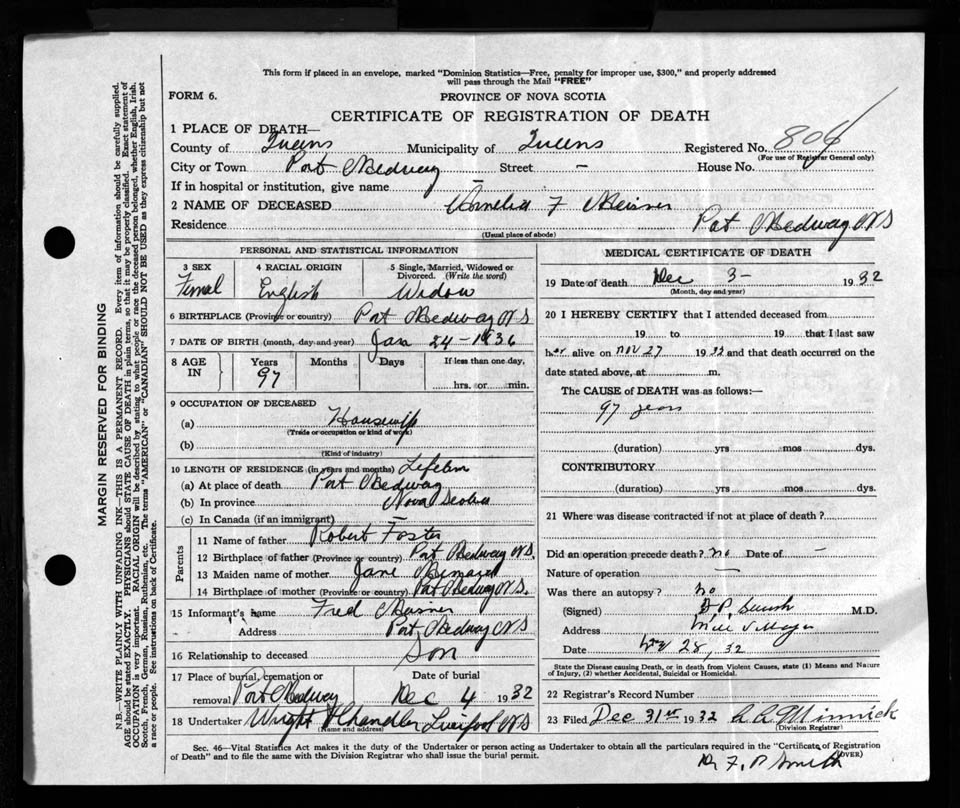 This form if placed in an envelope, marked "Dominion Statistics—Free, penalty for improper use, $300," and properly addressed
will pass through the Mail "FREE"
FORM 6.
PROVINCE OF NOVA SCOTIA
CERTIFICATE OF REGISTRATION OF DEATH
1 PLACE OF DEATH—
County of Queens Municipality of Queens Registered No. 806
(For use of Registrar General only)
City or Town Port Medway Street – House No.
If in hospital or institution, give name –
2 NAME OF DECEASED Cornelia F Meisner
Residence Port Medway NS
(Usual place of abode)
PERSONAL AND STATISTICAL INFORMATION
3 SEX 4 RACIAL ORIGIN 5 Single, Married, Widowed or
Divorced. (Write the word)
Femal English Widow
6 BIRTHPLACE (Province or country) Port Medway NS
7 DATE OF BIRTH (month, day and year) Jan 24-1836
8 AGE IN Years Months Days If less than one day,
97 hrs. or min.
9 OCCUPATION OF DECEASED
(a) Housewife
(Trade or occupation or kind of work)
(b)
(Kind of industry)
10 LENGTH OF RESIDENCE (in years and months)
(a) At place of death Port Medway
(b) In province Nova Scotia
(c) In Canada (if an immigrant) —
Parents
11 Name of father Robert Foster
12 Birthplace of father (Province or country) Port Medway NS.
13 Maiden name of mother Jane
14 Birthplace of mother (Province or country) Port Medway NS.
15 Informant's name Fred Meisner
Address Port Medway NS
16 Relationship to deceased Son
17 Place of burial, cremation or removal Port Medway
Date of burial
Dec 4 1932
18 Undertaker Wright & Chandler Liverpool NS
(Name and address)
MEDICAL CERTIFICATE OF DEATH
19 Date of death Dec 3- 1932
(Month, day and year)
20 I HEREBY CERTIFY that I attended deceased from
19 to 19 that I last saw
her alive on Nov 27 1932 and that death occurred on the
date stated above, at m.
The CAUSE of DEATH was as follows:—
97 years
(duration) yrs mos dys.
CONTRIBUTORY
(duration) yrs mos dys.
21 Where was disease contracted if not at place of death?
Did an operation precede death? no Date of –
Nature of operation —
Was there an autopsy? no
(Signed) M.D.
Address Mill Village
Date 28, 32
State the Disease causing Death, or in death from Violent Causes, state (1) Means and Nature
of Injury, (2) whether Accidental, Suicidal or Homicidal.
22 Registrar's Record Number
23 Filed Dec 31st 1932 Minnick
(Division Registrar)
Sec. 46—Vital Statistics Act makes it the duty of the Undertaker or person acting as Undertaker to obtain all the particulars required in the "Certificate of Registration
of Death" and to file the same with the Division Registrar who shall issue the burial permit.
(OVER)
Dr F. P Smith
MARGIN RESERVED FOR BINDING
N.B.—WRITE PLAINLY WITH UNFADING INK—THIS IS A PERMANENT RECORD. Every item of information should be carefully supplied.
AGE should be stated EXACTLY. PHYSICIANS should STATE CAUSE OF DEATH in plain terms, so that it may be properly classified. Exact statement of
OCCUPATION is very important. RACIAL ORIGIN will be described by stating to what people or race the deceased person belonged, whether English, Irish,
Scotch, French, German, Russian, Ruthenian, etc. The terms "AMERICAN" or "CANADIAN" SHOULD NOT BE USED as they express citizenship but not
a race or people. See instructions on back of Certificate.